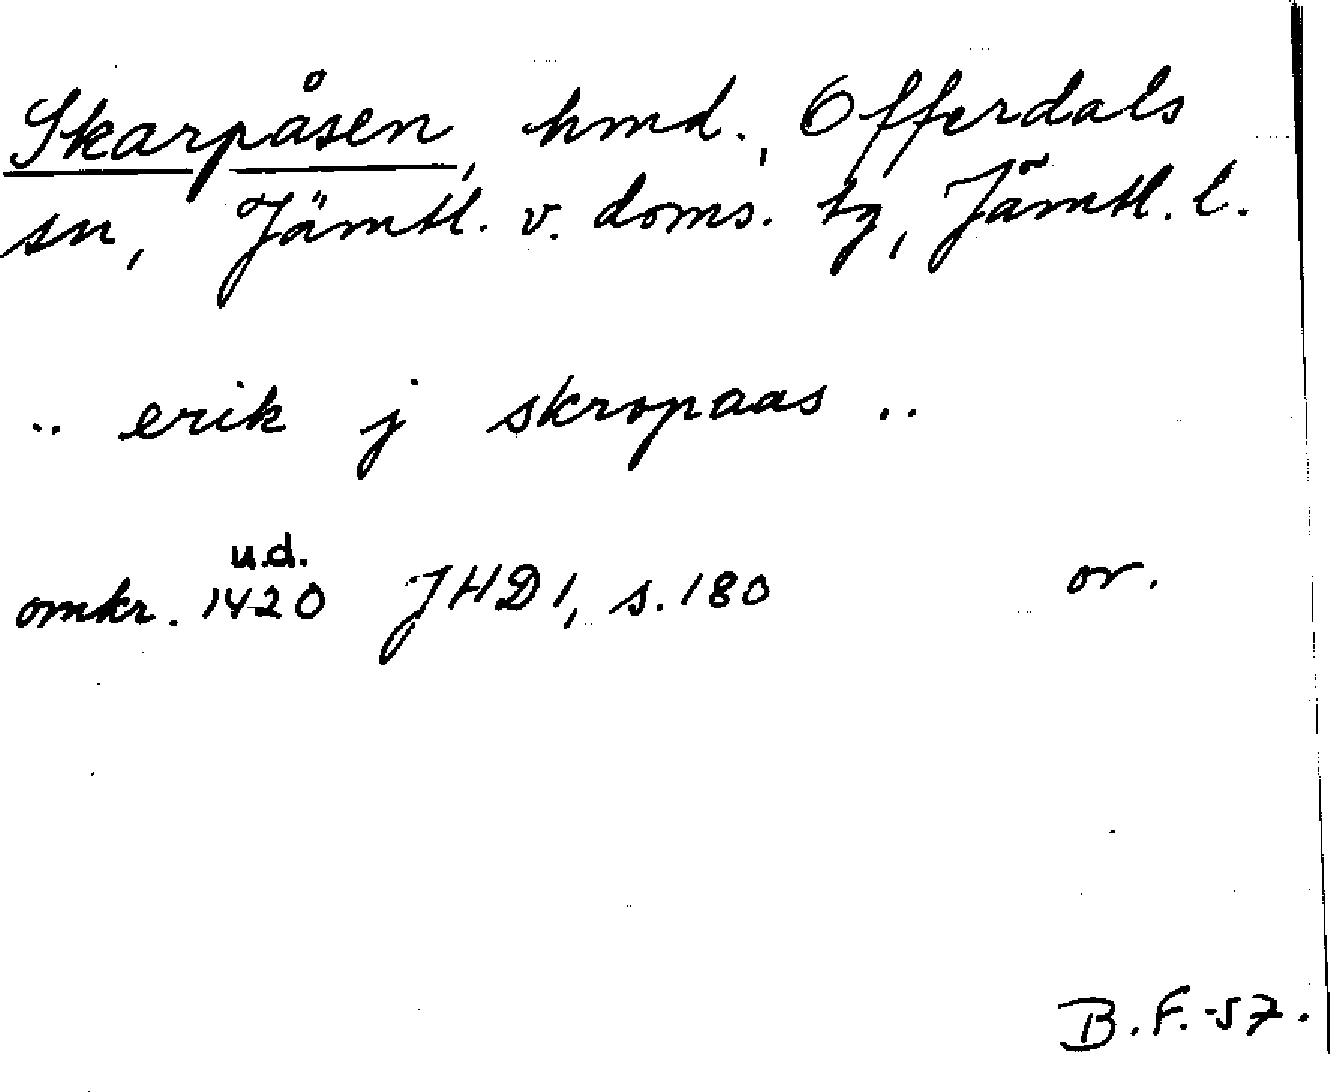 Skarpåsen, hmd., Offerdals
sn, Jämtl. v. doms. tg, Jämtl. l.
.. erik j skropaas ..
u.d.
omkr. 1420 JHD 1, s. 180 or.
B.F. -57.